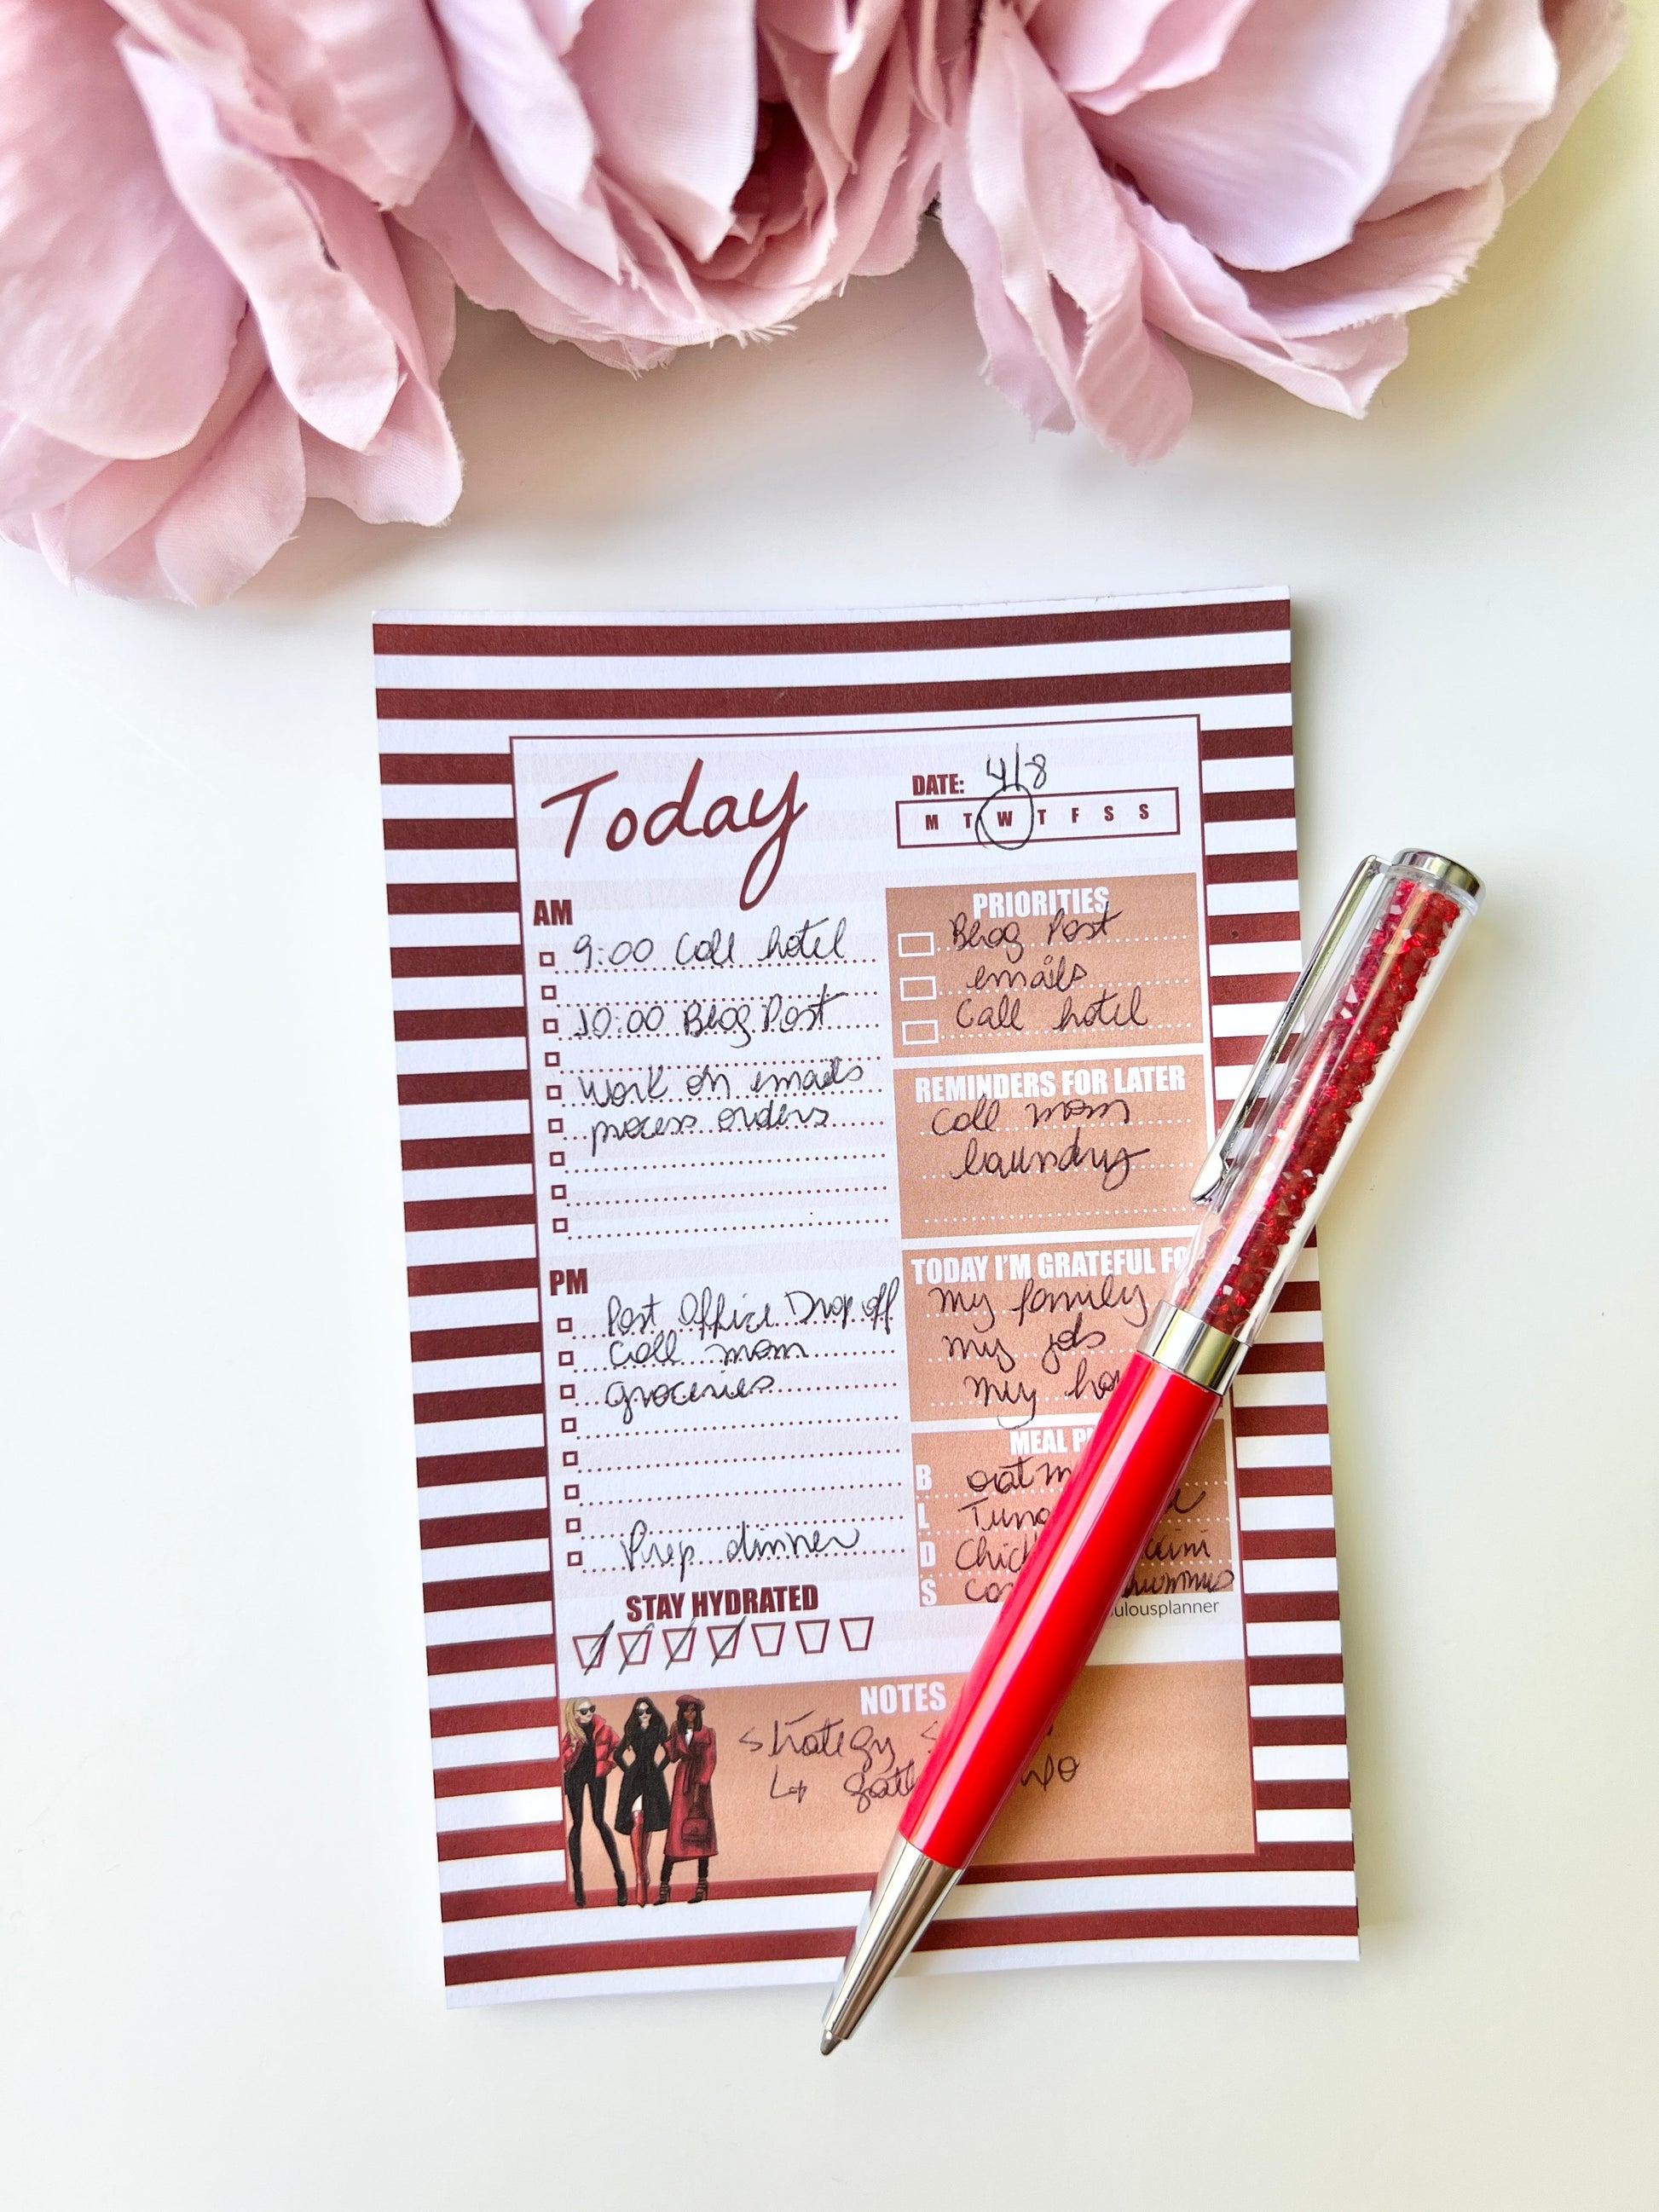 Today
DATE: 4/8
M T W T F S S
AM
9:00 Call hotel
10:00 Blog Post
work on emails
process orders
PM
Post Office Drop off
Call mom
groceries
Prep dinner
STAY HYDRATED
PRIORITIES
Blog Post
emails
Call hotel
REMINDERS FOR LATER
Call mom
laundry
TODAY I'M GRATEFUL
my family
my job
my
MEAL
B
L
D
S hummus
NOTES
strategy
↳